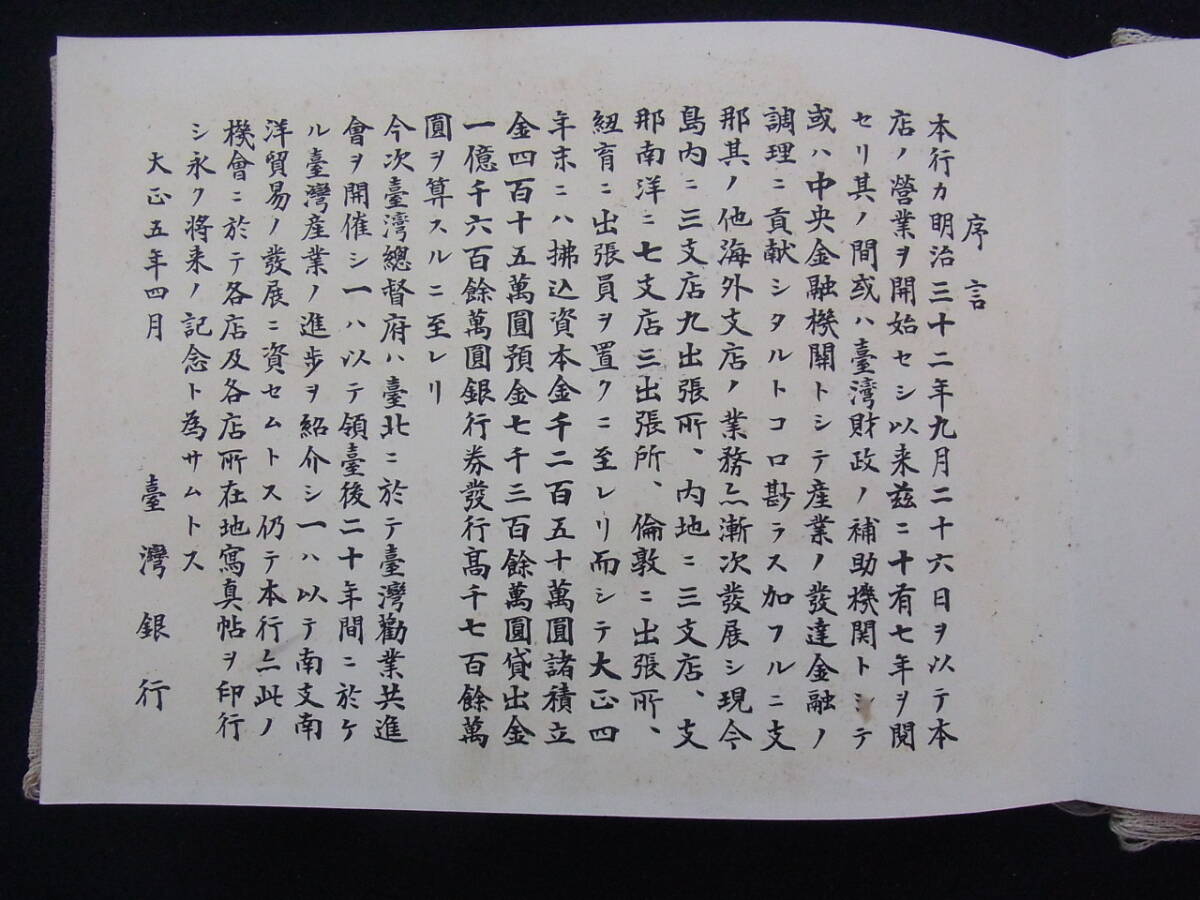 序言
本行カ明治三十二年九月二十六日ヲ以テ本
店ノ營業ヲ開始セシ以来茲ニ十有七年ヲ閲
セリ其ノ間或ハ臺湾財政ノ補助機関トシテ
或ハ中央金融機關トシテ産業ノ發達金融ノ
調理ニ貢献シタルトコロ尠ラス加フルニ支
那其ノ他海外支店ノ業務亦漸次發展シ現今
島内ニ三支店九出張所、内地ニ三支店、支
那南洋ニ七支店三出張所、倫敦ニ出張所、
紐育ニ出張員ヲ置クニ至レリ而シテ大正四
年末ニハ拂込資本金千二百五十萬圓諸積立
金四百十五萬圓預金七千三百餘萬圓貸出金
一億千六百餘萬圓銀行券發行髙千七百餘萬
圓ヲ算スルニ至レリ
今次臺湾總督府ハ臺北ニ於テ臺灣勸業共進
會ヲ開催シ一ハ以テ領臺後二十年間ニ於ケ
ル臺灣産業ノ進歩ヲ紹介シ一ハ以テ南支南
洋貿易ノ發展ニ資セムトス仍テ本行亦此ノ
機會ニ於テ各店及各店所在地寫真帖ヲ印行
シ永ク將来ノ記念ト為サムトス
大正五年四月
臺灣銀行